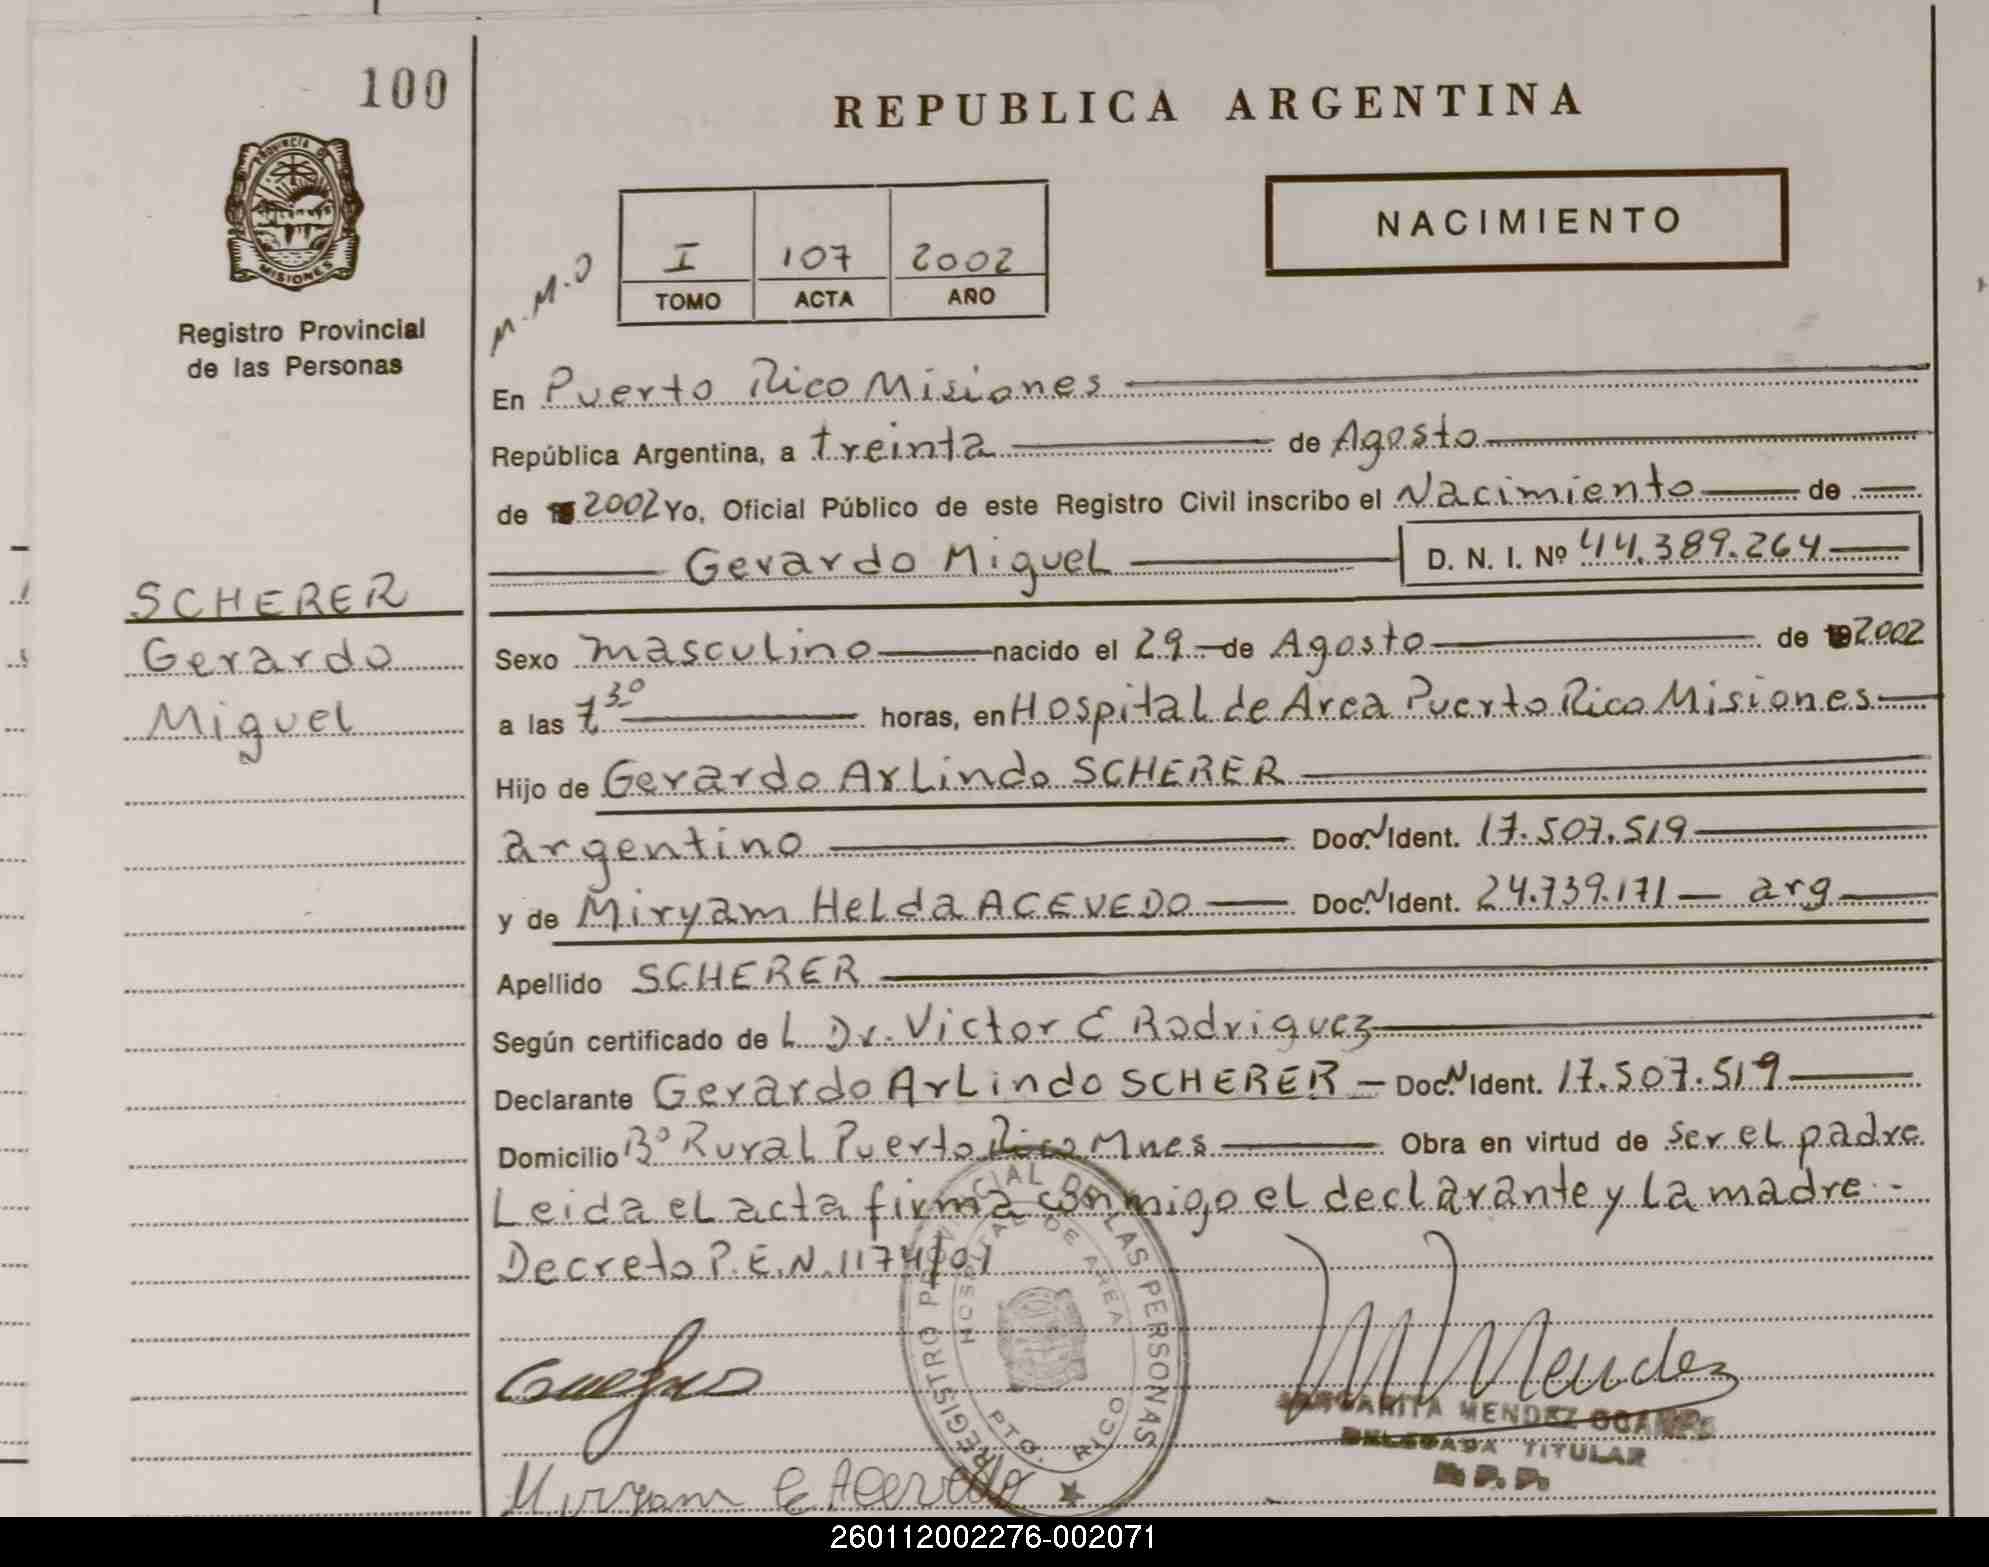 100
REPUBLICA ARGENTINA
PROVINCIA DE
MISIONES
NACIMIENTO
I 107 2002
TOMO ACTA AÑO
M.M.O
Registro Provincial
de las Personas
En Puerto Rico Misiones
República Argentina, a treinta de Agosto
de 2002 Yo, Oficial Público de este Registro Civil inscribo el Nacimiento de
Gerardo Miguel D. N. I. Nº 44.389.264
SCHERER
Gerardo
Miguel
Sexo masculino nacido el 29 de Agosto de 2002
a las 7 30 horas, en Hospital de Area Puerto Rico Misiones
Hijo de Gerardo Arlindo SCHERER
argentino Doc. N Ident. 17.507.519
y de Miryam Helda ACEVEDO Doc. N Ident. 24.739.171 arg
Apellido SCHERER
Según certificado de L Dr. Victor E Rodriguez
Declarante Gerardo Arlindo SCHERER Doc. N Ident. 17.507.519
Domicilio Bº Rural Puerto Rico Mnes Obra en virtud de ser el padre
Leida el acta firma conmigo el declarante y la madre.-
Decreto P.E.N. 1174/01
REGISTRO PROVINCIAL DE LAS PERSONAS
HOSPITAL DE AREA
PTO. RICO
M Mendez
MARGARITA MENDEZ OCAMPO
DELEGADA TITULAR
R.P.P.
Miryam E Acevedo
260112002276-002071